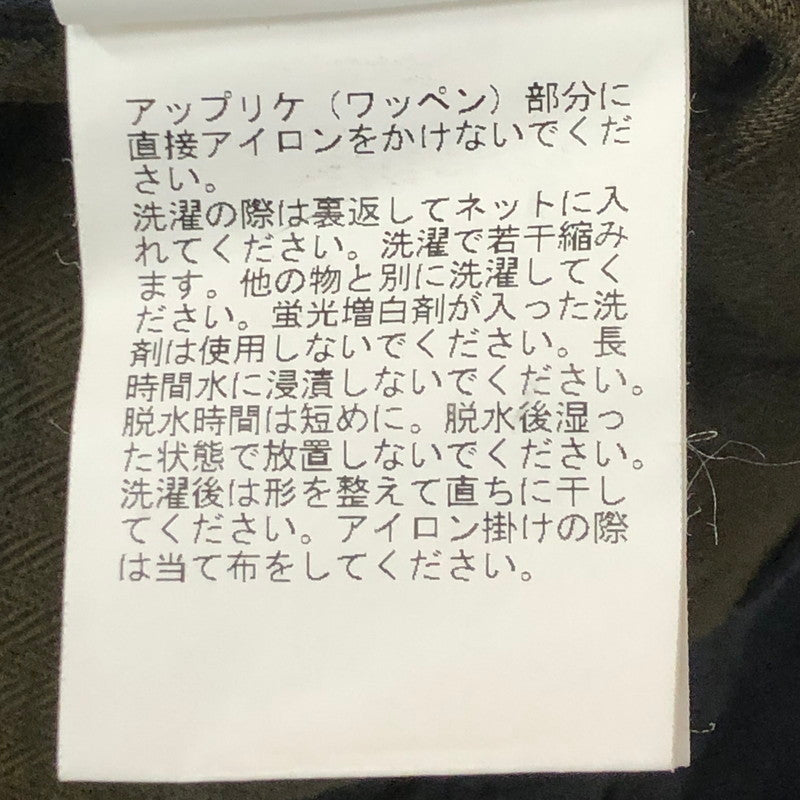 アップリケ（ワッペン）部分に
直接アイロンをかけないでくだ
さい。
洗濯の際は裏返してネットに入
れてください。洗濯で若干縮み
ます。他の物と別に洗濯してく
ださい。蛍光増白剤が入った洗
剤は使用しないでください。長
時間水に浸漬しないでください。
脱水時間は短めに。脱水後湿っ
た状態で放置しないでください。
洗濯後は形を整えて直ちに干し
てください。アイロン掛けの際
は当て布をしてください。